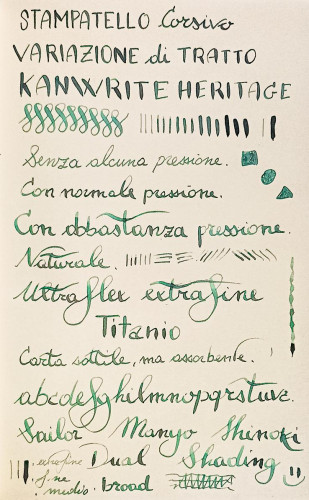 STAMPATELLO Corsivo
VARIAZIONE di TRATTO
KANWRITE HERITAGE
Senza alcuna pressione.
Con normale pressione.
Con abbastanza pressione.
Naturale.
Ultraflex extrafine
Titanio
Carta sottile, ma assorbente.
abcdefghilmnopqrstuvz
Sailor Manyo Shinoki
extrafine Dual Shading
fine
medio. broad